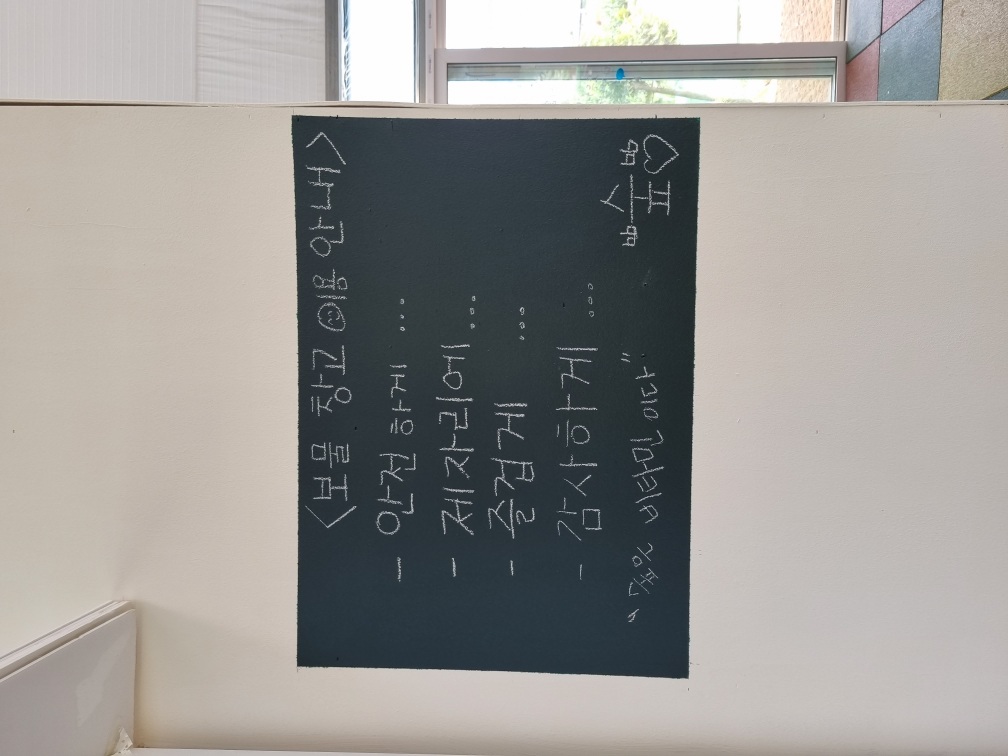 <보물 창고 이용 안내>
- 안전 하게 ...
- 제자리에 ...
- 즐겁게 ...
- 감사하게 ...
"숲은 비타민이다"
숲♡